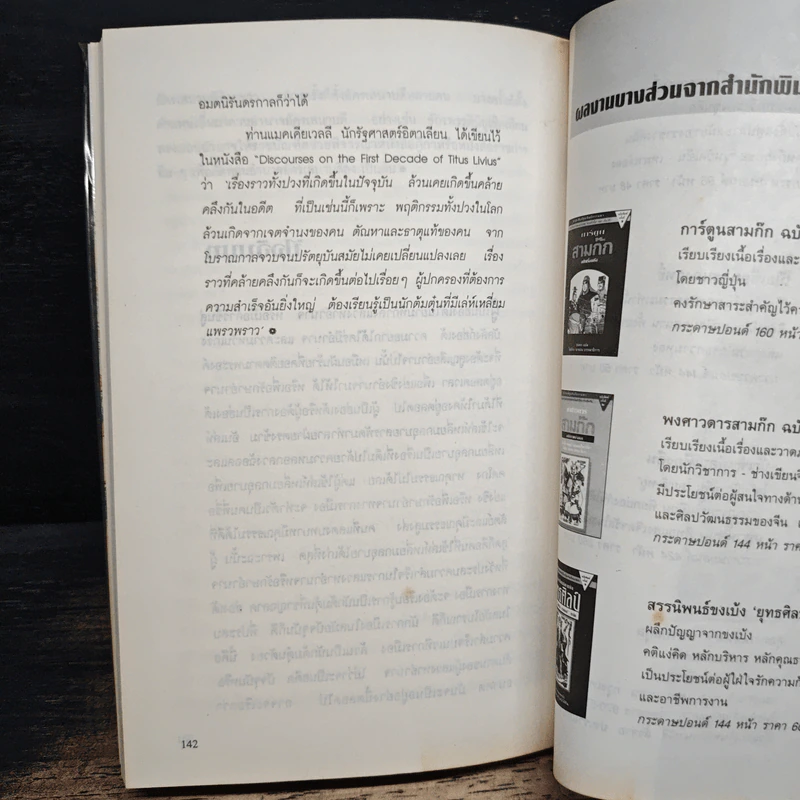 อมตนิรันดรกาลก็ว่าได้
ท่านแมคเคียเวลลี นักรัฐศาสตร์อิตาเลียน ได้เขียนไว้
ในหนังสือ "Discourses on the First Decade of Titus Livius"
ว่า 'เรื่องราวทั้งปวงที่เกิดขึ้นในปัจจุบัน ล้วนเคยเกิดขึ้นคล้าย
คลึงกันในอดีต ที่เป็นเช่นนี้ก็เพราะ พฤติกรรมทั้งปวงในโลก
ล้วนเกิดจากเจตจำนงของคน ตัณหาและธาตุแท้ของคน จาก
โบราณกาลจวบจนปรัตยุบันสมัยไม่เคยเปลี่ยนแปลงเลย เรื่อง
ราวที่คล้ายคลึงกันก็จะเกิดขึ้นต่อไปเรื่อยๆ ผู้ปกครองที่ต้องการ
ความสำเร็จอันยิ่งใหญ่ ต้องเรียนรู้เป็นนักต้มตุ๋นที่มีเล่ห์เหลี่ยม
แพรวพราว'
142
ผลงานบางส่วนจากสำนักพิม
การ์ตูนสามก๊ก ฉบั
เรียบเรียงเนื้อเรื่องและ
โดยชาวญี่ปุ่น
คงรักษาสาระสำคัญไว้คร
กระดาษปอนด์ 160 หน้า
การ์ตูน
สามก๊ก
พงศาวดารสามก๊ก ฉบั
เรียบเรียงเนื้อเรื่องและวาดภ
โดยนักวิชาการ - ช่างเขียนจี
มีประโยชน์ต่อผู้สนใจทางด้า
และศิลปวัฒนธรรมของจีน
กระดาษปอนด์ 144 หน้า ราค
สามก๊ก
สรรนิพนธ์ขงเบ้ง 'ยุทธศิล
ผลึกปัญญาจากขงเบ้ง
คติแง่คิด หลักบริหาร หลักคุณธ
เป็นประโยชน์ต่อผู้ใฝ่ใจรักความก้
และอาชีพการงาน
กระดาษปอนด์ 144 หน้า ราคา 60